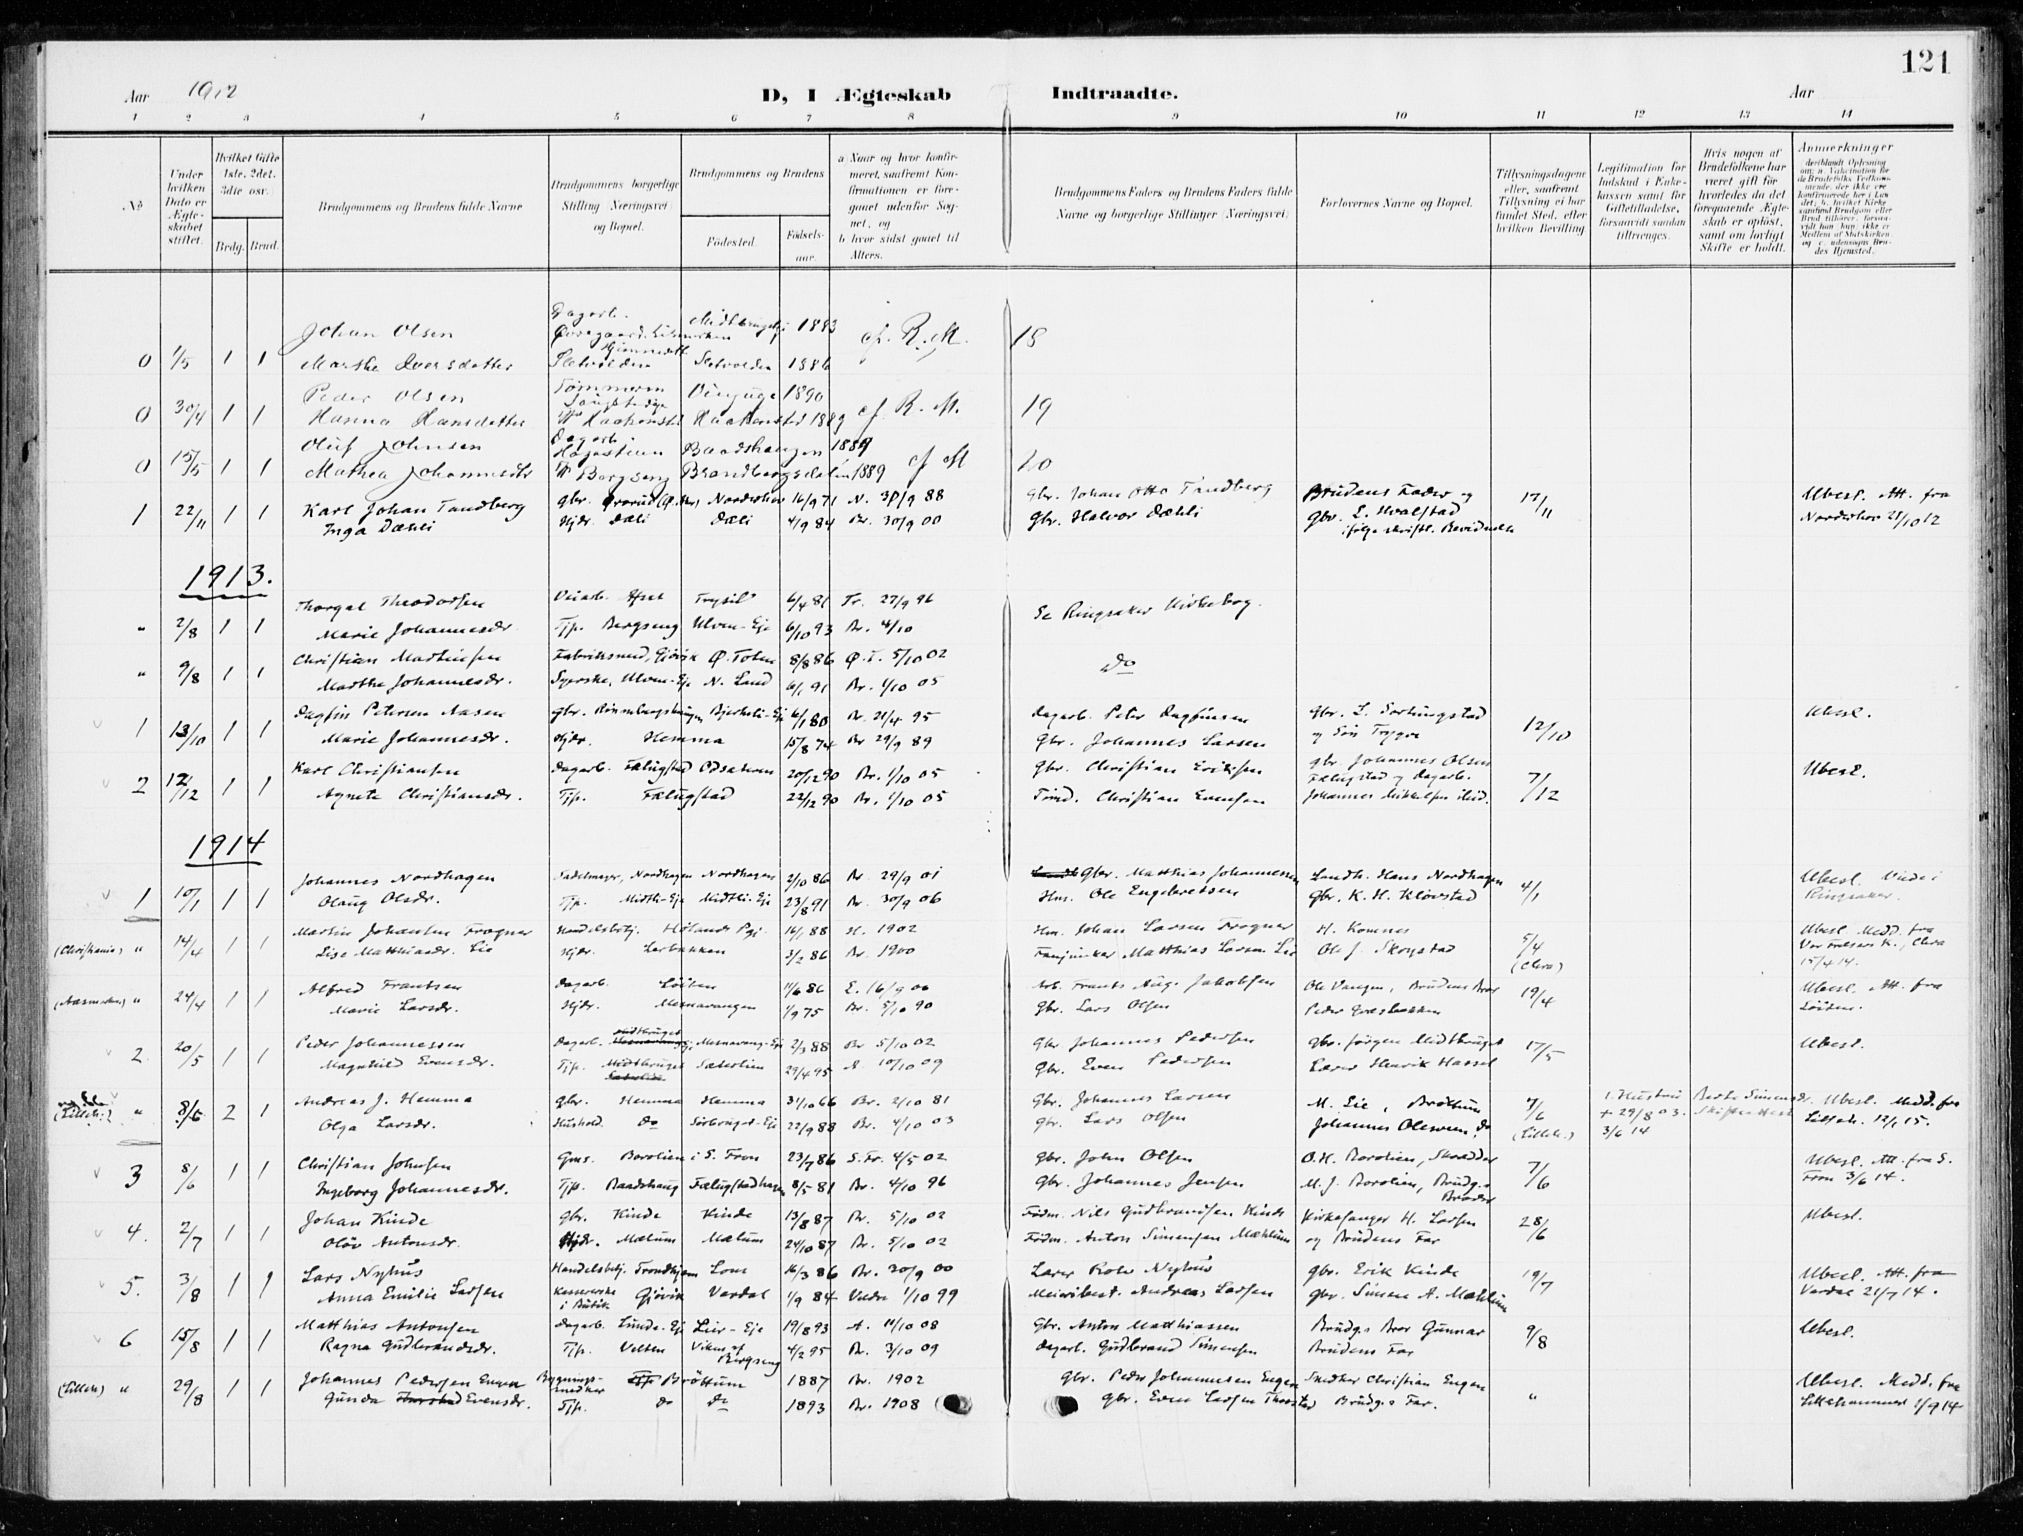 121
Aar 1912 D, I Ægteskab Indtraadte. Aar
1 2 3 4 5 6 7 8 9 10 11 12 13 14
No
Under hvilken Dato er Ægteskabet stiftet.
Hvilket Gifte 1ste, 2det, 3die osv.
Brdg. Brud.
Brudgommens og Brudens fulde Navne
Brudgommens borgerlige Stilling Næringsvei og Bopæl.
Brudgommens og Brudens
Fødested. Fødsels-aar.
a Naar og hvor konfirmeret, saafremt Konfirmationen er foregaaet udenfor Sognet, og
b hvor sidst gaaet til Alters.
Brudgommens Faders og Brudens Faders fulde Navne og borgerlige Stillinger (Næringsvei)
Forlovernes Navne og Bopæl.
Tillysningsdagene eller, saafremt Tillysning ei har fundet Sted, efter hvilken Bevilling
Legitimation for Indskud i Enkekassen samt for Giftetilladelse, forsaavidt saadan tiltrænges.
Hvis nogen af Brudefolkene har været gift før hvorledes da det foregaaende Ægteskab er opløst, samt om lovligt Skifte er holdt.
Anmerkninger
Johan Olsen Dagarb. 1883 cf. R. M. 18
0 1/5 1 1 Marthe Iversdatter Sletvolden Sletvolden 1886
Peder Olsen 1890
0 30/4 1 1 Hanna Hansdatter Haakenstad 1889 cf. R. M. 19
Oluf Johnsen Dagarb. Baadshaugen 1889
0 15/5 1 1 Mathea Johannesdtr Bergseng Brandbergsdalen 1889 cf M 20
1 22/11 1 1 Karl Johan Tandberg Gbr. Norderhov 16/9 71 N. 88 Gbr. Johan Otto Tandberg Brudens Fader og 17/11 Ubesl. Att. fra
Inga Dæhli Hjdr. Dæli Dæli 4/9 84 Br. 30/9 00 Gbr. Halvor Dæhli Gbr. L. Hvalstad Norderhov 28/10 12
ifølge skriftl. Bevidnelse
1913.
Thorgal Theodorsen Trysil 6/4 81 Tr. 27/9 96 Se Ringsaker Kirkebog.
" 2/8 1 1 Marie Johannesdr. Tjp. Bergseng Ulven-Eje 6/10 93 Br. 4/10
Christian Mathisen Fabriksmed, Gjøvik Ø. Toten 8/8 86 Ø. T. 5/10 02 Do
" 9/8 1 1 Marthe Johannesdr. Syerske, Ulven-Eje N. Land 6/1 91 Br. 1/10 05
Dagfin Petersen Aasen Gbr. Bjerkeli-Eje 6/1 80 Br. 21/4 95 Dagarb. Peter Dagfinsen Ubesl.
1 13/10 1 1 Marie Johannesdr. Hjdr. Hemma 15/8 74 Br 29/9 89 Gbr. Johannes Larsen og Søn Trygve 12/10
Karl Christiansen Dagarb. Fælugstad 20/12 90 Br. 1/10 05 Gbr. Christian Eriksen Gbr. Johannes Olsen Ubesl.
2 12/12 1 1 Agnete Christiansdr. Tjp. Fælugstad 22/12 90 Br. 1/10 05 Tømd. Christian Evensen Fælugstad og Dagarb. Johannes Mikkelsen ibid. 7/12
1914
Johannes Nordhagen Sadelmager, Nordhagen Nordhagen 2/10 86 Br. 29/9 01 Gbr. Matthias Johannessen Landh. Hans Nordhagen Ubesl. Viede i
1 10/1 1 1 Olaug Olsdr. Tjp. Midtli-Eje Midtli-Eje 23/8 91 Br. 30/9 06 Hm. Ole Engebretsen Gbr. K. H. Klovstad 4/1 Ringsaker.
Martin Johansen Frogner Handelsbetj. Hølands Pgj. 16/1 88 H. 1902 Hm. Johan Larsen Frogner H. Komnes Ubesl. Medd. fra
(Christiania) " 14/4 1 1 Lise Matthiasdr. Lie Hjdr. Lerbakken 3/2 86 Br. 1900 Matthias Larsen Lie Ole J. Skogstad 5/4 (Chra) Vor Frelsers K., Chra 15/4 14.
Alfred Frantsen Dagarb. Løiten 11/6 86 L. 16/9 00 Arb. Frants Aug. Jakobsen Ole Vangen, Brudens Bror Ubesl. Att. fra
" 24/4 1 1 Marie Larsdr. Hjdr. Mesnavangen 1/9 75 Br. 5/10 90 Gbr. Lars Olsen 19/4 Løiten.
Peder Johannessen Dagarb. Midtbruget Mesnavang-Eje 2/3 88 Br 5/10 02 Gbr Johannes Pedersen Gbr. Jørgen Midtbruget Ubesl.
2 20/5 1 1 Magnhild Evensdr. Tjp. Midtbruget Sæterlien 29/4 95 10/10 09 Gbr. Even Pedersen Lærer Henrik Hassel 17/5
Andreas J. Hemma Gbr. Hemma Hemma 31/10 66 Br. 2/10 81 Gbr. Johannes Larsen M. Lie, Brøttum 1. Hustru Berte Simensdr. Ubesl. Medd. fra
(Lilleh.) " 8/6 2 1 Olga Larsdr. Hushold. Do 22/9 88 Br. 4/10 03 Gbr. Lars Olsen Johannes Olesveen, Do 7/6 (Lilleh.) + 29/8 03. 3/6 14 Lilleh. 12/1 15.
Christian Johnsen Gms. Borolien i S. Fron 23/7 86 S. Fr. 4/5 02 Gbr. John Olsen O. H. Borolien, Skrædder Ubesl. Att. fra S.
3 8/6 1 1 Ingeborg Johannesdr. Tjp. Baadshaug Fælugstadhagen 8/5 81 Br. 4/10 96 Gbr. Johannes Jensen M. J. Borolien, Brudg.s Broder 7/6 Fron 3/6 14.
Johan Kinde Gbr. Kinde Kinde 13/8 87 Br. 5/10 02 Føder. Nils Gudbrandsen Kinde Kirkesanger H. Larsen Ubesl.
4. 2/7 1 1 Oløv Antonsdr. Hjdr. Mælum Mælum 24/10 87 Br. 5/10 02 Anton Simensen Mæhlum og Brudens Far 28/6
Lars Nyhus Handelsbetj. Trondhjem Lom 16/3 86 Br. 30/9 00 Lærer Rolv Nyhus Gbr. Erik Kinde Ubesl. Att. fra
5. 3/8 1 1 Anna Emilie Larsen Kassererske i Butik Gjøvik Vardal 1/9 84 1/10 99 Meieribest. Andreas Larsen Gbr. Simen A. Mæhlum 19/7 Vardal 21/7 14.
Matthias Antonsen Dagarb. Lunde-Eje Lier-Eje 19/8 93 A. 11/10 08 Gbr. Anton Matthiassen Brudg.s Bror Gunnar Ubesl.
6 15/8 1 1 Ragna Gudbrandsdr. Tjp. Velten Viken af Bergseng 4/2 95 Br. 3/10 09 Dagarb. Gudbrand Simensen Brudens Far 9/8
Johannes Pedersen Engen Bygningssnedker Brøttum 1887 Br. 1902 Gbr. Peder Johannessen Engen Snedker Christian Engen Ubesl. Medd. fra
(Lilleh) " 29/8 1 1 Gunda Evensdr. Tjp. Do Do 1893 Br. 1908 Gbr. Even Larsen Thorstad Brudg.s Far. " Lillehammer 1/9 14